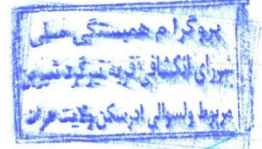 پروگرام همبستگی ملی
شورای انکشافی قریه تیرگرد شیرین
مربوط ولسوالی ادرسکن ولایت هرات